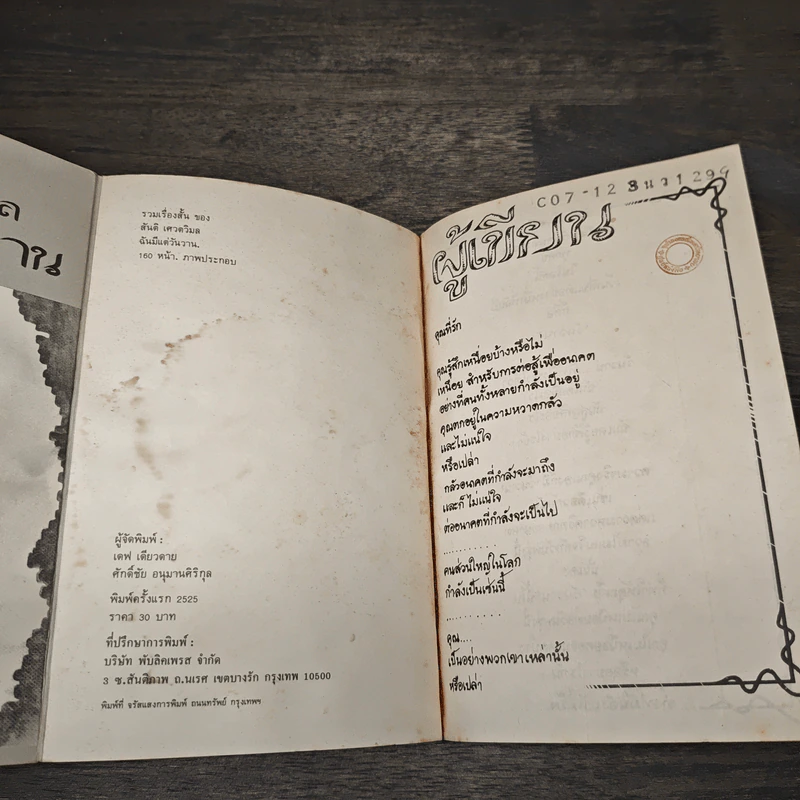 ล
าน
รวมเรื่องสั้น ของ
สันติ เศวตวิมล
ฉันมีแต่วันวาน.
160 หน้า. ภาพประกอบ
ผู้จัดพิมพ์ :
เดฟ เดียวดาย
ศักดิ์ชัย อนุมานศิริกุล
พิมพ์ครั้งแรก 2525
ราคา 30 บาท
ที่ปรึกษาการพิมพ์ :
บริษัท พับลิคเพรส จำกัด
3 ซ.สันติภาพ ถ.นเรศ เขตบางรัก กรุงเทพ 10500
พิมพ์ที่ จรัสแสงการพิมพ์ ถนนทรัพย์ กรุงเทพฯ
C07-12
ผู้เขียน
คุณที่รัก
คุณรู้สึกเหนื่อยบ้างหรือไม่
เหนื่อย สำหรับการต่อสู้เพื่ออนาคต
อย่างที่คนทั้งหลายกำลังเป็นอยู่
คุณตกอยู่ในความหวาดกลัว
และไม่แน่ใจ
หรือเปล่า
กลัวอนาคตที่กำลังจะมาถึง
และก็ ไม่แน่ใจ
ต่ออนาคตที่กำลังจะเป็นไป
...........
คนส่วนใหญ่ในโลก
กำลังเป็นเช่นนี้
...........
คุณ....
เป็นอย่างพวกเขาเหล่านั้น
หรือเปล่า